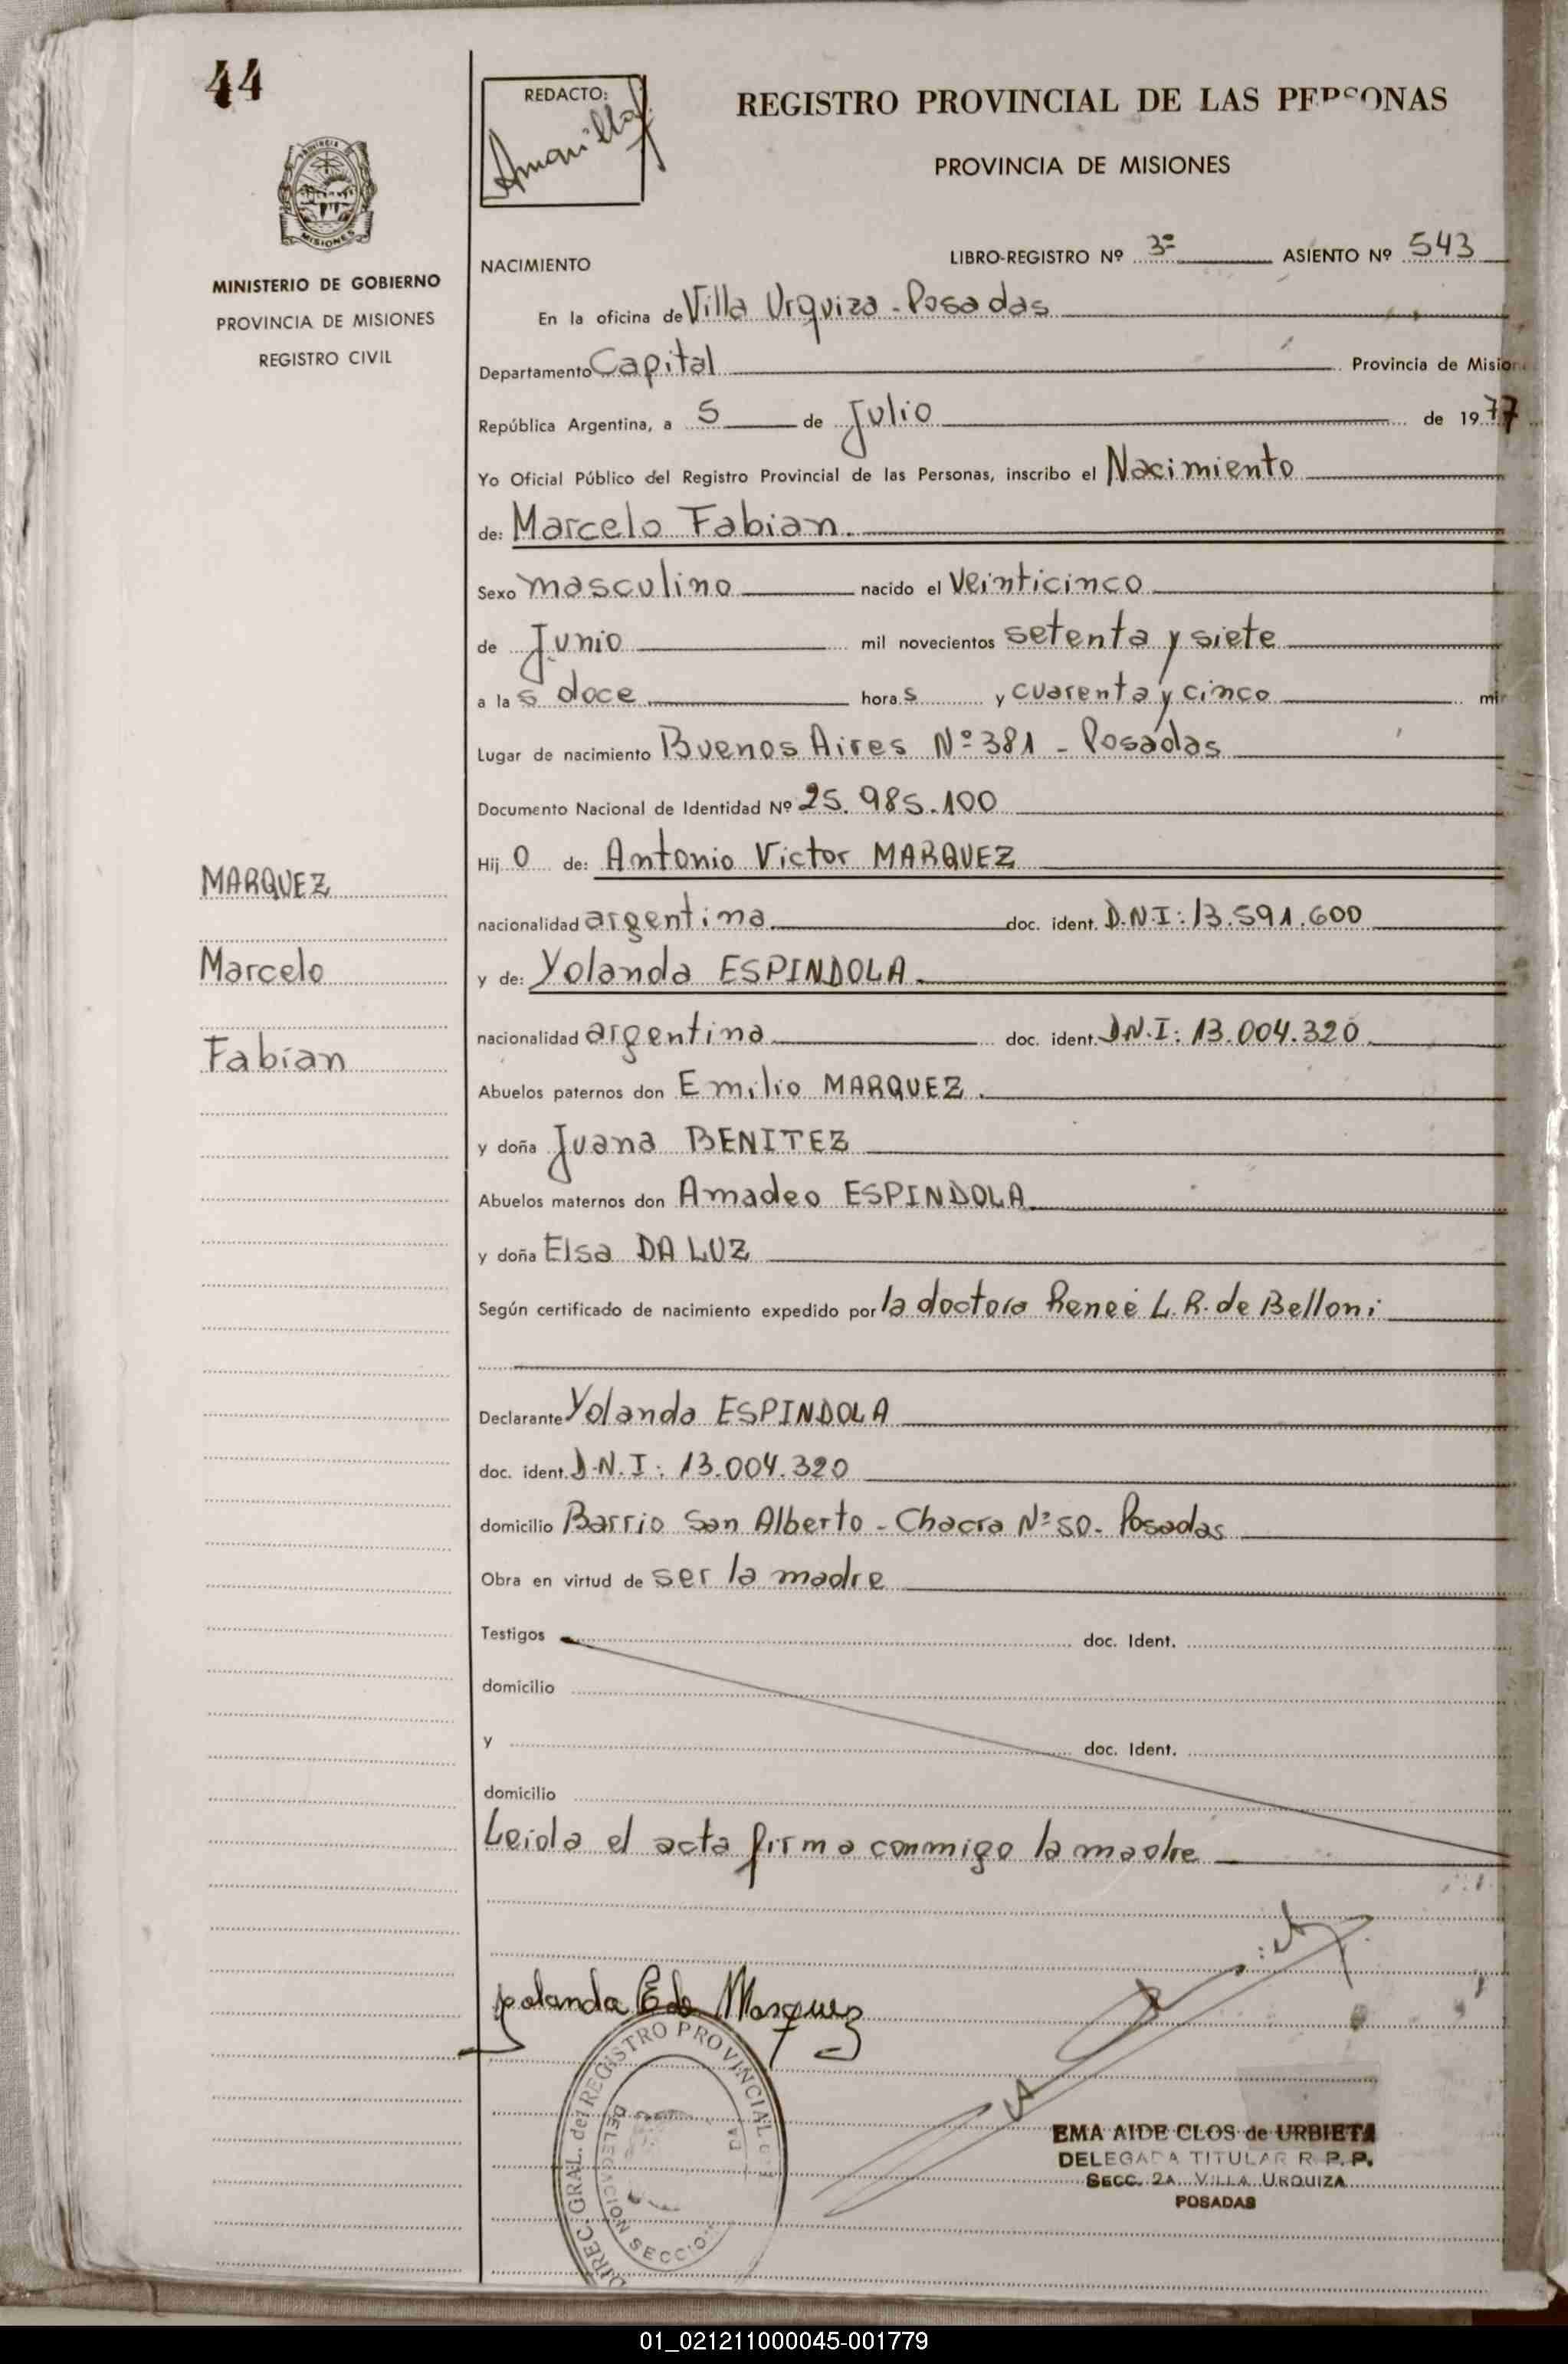 44
REDACTO:
REGISTRO PROVINCIAL DE LAS PERSONAS
PROVINCIA DE MISIONES
MISIONES
MINISTERIO DE GOBIERNO
PROVINCIA DE MISIONES
REGISTRO CIVIL
NACIMIENTO
LIBRO-REGISTRO Nº 3º ASIENTO Nº 543
En la oficina de Villa Urquiza - Posadas
Departamento Capital Provincia de Mision
República Argentina, a 5 de Julio de 1977
Yo Oficial Público del Registro Provincial de las Personas, inscribo el Nacimiento
de: Marcelo Fabian.
Sexo masculino nacido el veinticinco
de Junio mil novecientos setenta y siete
a la s doce hora s y cuarenta y cinco mi
Lugar de nacimiento Buenos Aires Nº 381 - Posadas
Documento Nacional de Identidad Nº 25.985.100
Hij o de: Antonio Victor MARQUEZ
MARQUEZ
nacionalidad argentina doc. ident. D.N.I: 13.591.600
Marcelo
y de: Yolanda ESPINDOLA.
nacionalidad argentina doc. ident. D.N.I: 13.004.320
Fabian
Abuelos paternos don Emilio MARQUEZ.
y doña Juana BENITEZ
Abuelos maternos don Amadeo ESPINDOLA
y doña Elsa DA LUZ
Según certificado de nacimiento expedido por la doctora Reneé L.R. de Belloni
Declarante Yolanda ESPINDOLA
doc. ident. D.N.I: 13.004.320
domicilio Barrio San Alberto - Chacra Nº 50 - Posadas
Obra en virtud de ser la madre
Testigos doc. Ident.
domicilio
y doc. Ident.
domicilio
Leida el acta firma conmigo la madre
Yolanda E de Marquez
DIREC. GRAL. del REGISTRO PROVINCIAL
DELEGACION SECCIO
EMA AIDE CLOS de URBIETA
DELEGADA TITULAR R.P.P.
SECC. 2A. VILLA URQUIZA
POSADAS
01_021211000045-001779